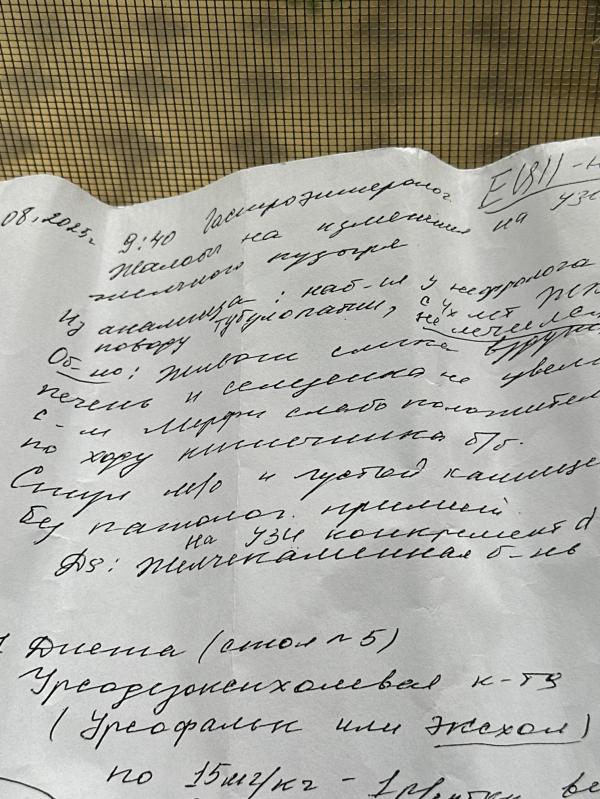 08.2025г. 9:40 Гастроэнтеролог
Жалобы на изменения на УЗИ
желчного пузыря
Из анамнеза: наб-ся у нефролога
поводу тубулопатии, с 4х лет ЖК
не лечился
Об-но: Живот слегка
печень и селезенка не увел
с-м Мерфи слабо положител
по ходу кишечника б/б.
Стул м/о и густой кашице
без патолог. примесей
на УЗИ конкремент d
Ds: Желчекаменная б-нь
Диета (стол №5)
Урсодезоксихолевая к-та
(Урсофальк или Эксхол)
по 15мг/кг - 1 р/сутки ве